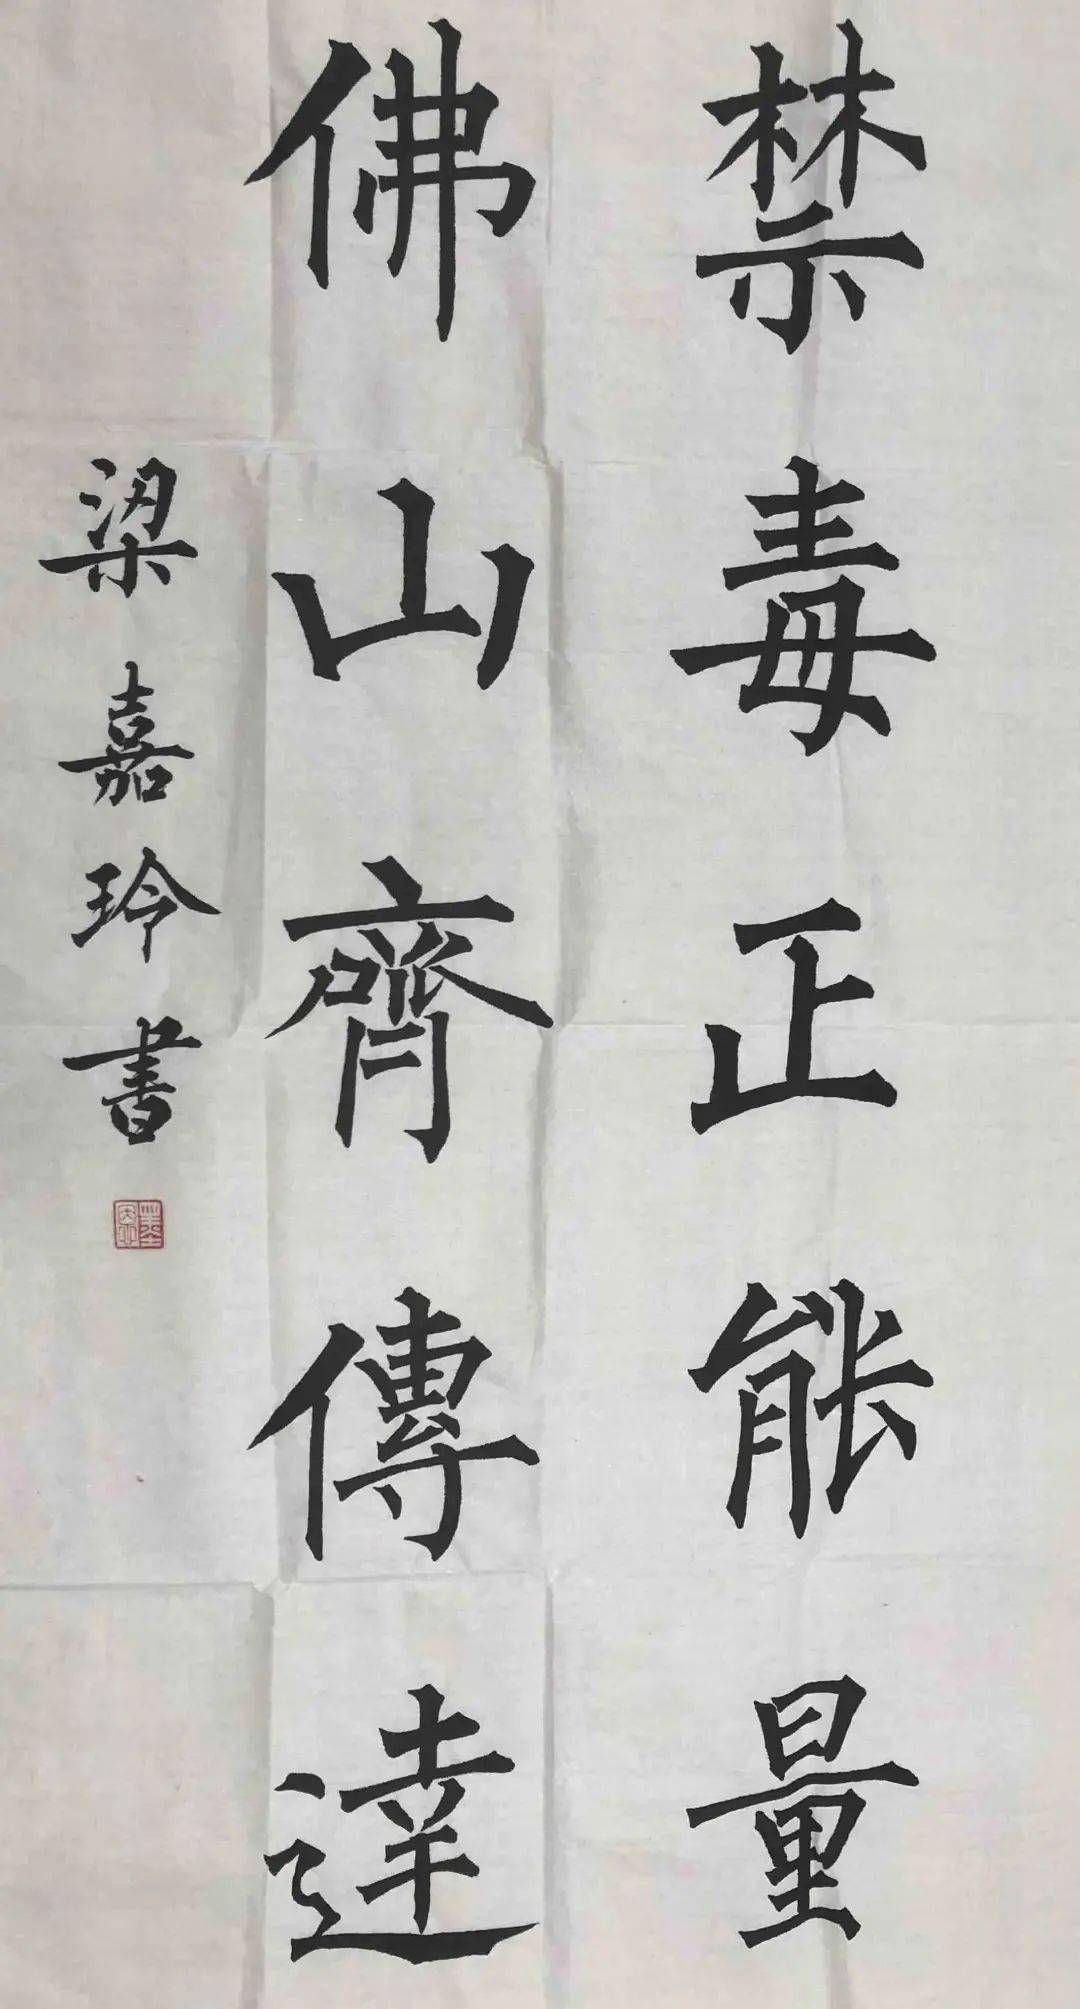 禁毒正能量
佛山齊傳達
梁嘉玲書